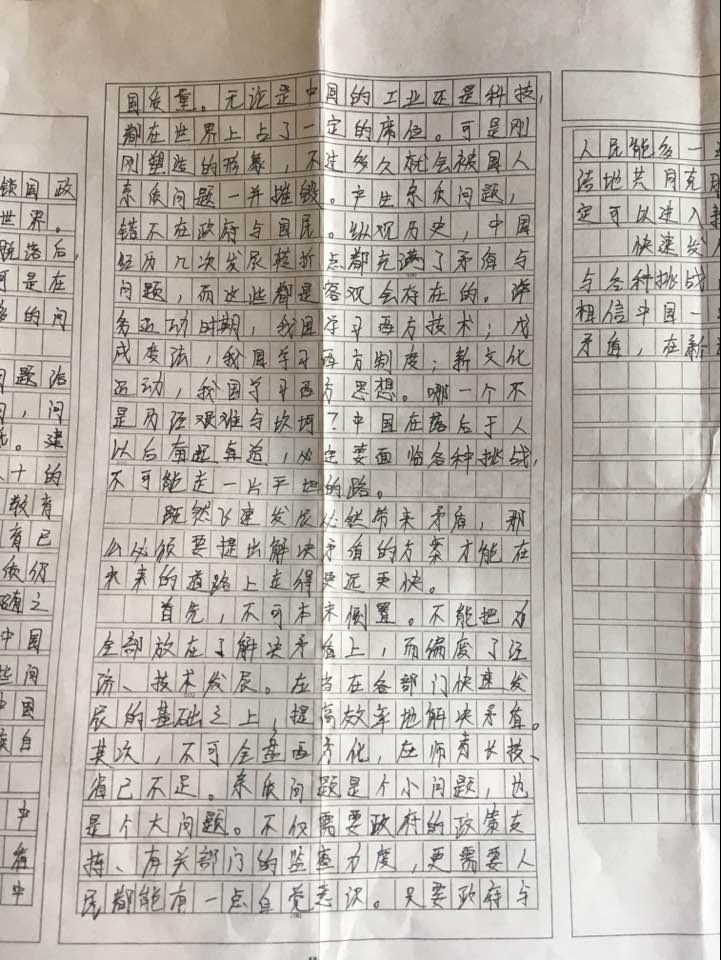 锁国政
世界。
落后,
可是在
多的问
问题治
问,问
。建
十的
教育
有已
质仍
随之
中国
些问
中国
族自
中
有
中
国质量。无论是中国的工业还是科技,
都在世界上占了一定的席位。可是刚
刚塑造的形象,不过多久就会被国人
素质问题一并摧毁。产生素质问题,
错不在政府与国民。纵观历史,中国
经历几次发展转折点都充满了矛盾与
问题,而这些都是客观会存在的。洋
务运动时期,我国学习西方技术;戊
戌变法,我国学习西方制度;新文化
运动,我国学习西方思想。哪一个不
是历经艰难与坎坷?中国在落后于人
以后奋起直追,必定要面临各种挑战,
不可能走一片平地的路。
既然飞速发展必然带来矛盾,那
么必须要提出解决矛盾的方案才能在
未来的道路上走得更远更快。
首先,不可本末倒置。不能把力
全部放在了解决矛盾上,而偏废了经
济、技术发展。应当在各部门快速发
展的基础之上,提高效率地解决矛盾。
其次,不可全盘西方化,在师夷长技、
省己不足。素质问题是个小问题,也
是个大问题。不仅需要政府的政策支
持、有关部门的监查力度,更需要人
民都能有一点自觉意识。只要政府与
人民能多一
地共同克
定可以进入新
快速发
与各种挑战
相信中国一
矛盾,在新